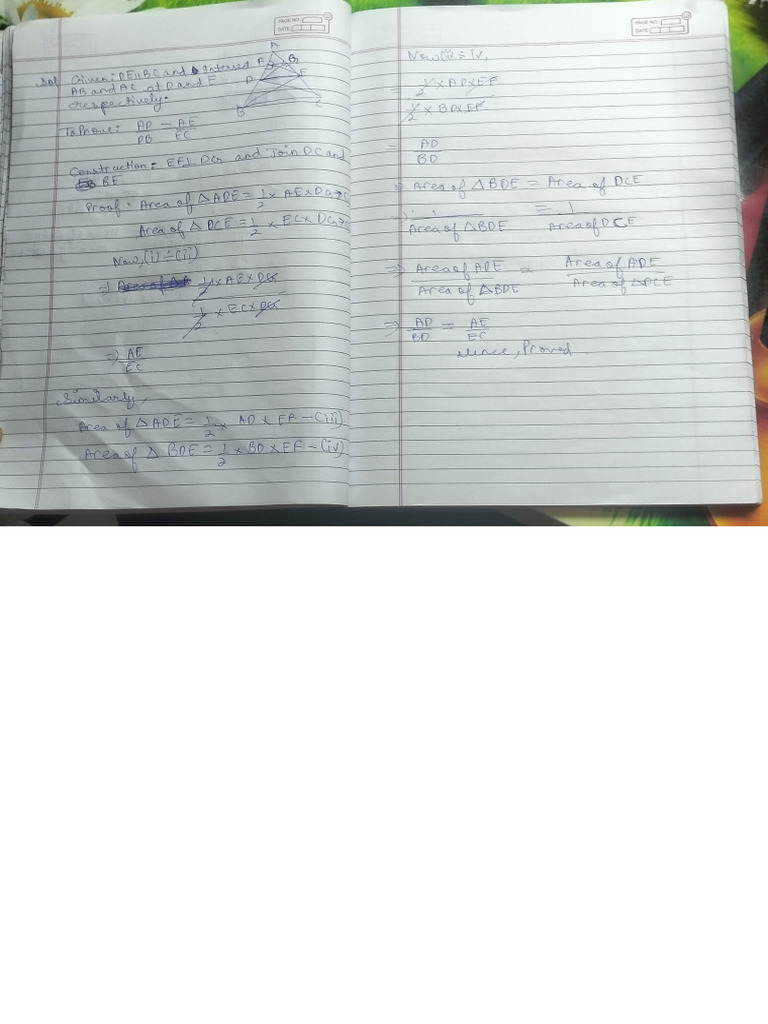 PAGE NO.:
DATE:
Sol Given: DE||BC and Interest
AB and AC at D and E
respectively.
A
F G
D E
B C
To Prove: AD = AE
DB EC
Construction: EF⊥ DG and Join DC and
BE
Proof: Area of △ADE = 1/2 × AE × DG
Area of △DCE = 1/2 × EC × DG
Now, (i) ÷ (ii)
⇒ 1/2 × AE × DG
1/2 × EC × DG
⇒ AE
EC
Similarly,
Area of △ADE = 1/2 × AD × EF – (iii)
Area of △ BDE = 1/2 × BD × EF – (iv)
PAGE NO.:
DATE:
Now (iii) ÷ iv,
= 1/2 × AD × EF
1/2 × BD × EF
= AD
BD
Area of △BDE = Area of DCE
= 1
Area of △BDE Area of DCE
⇒ Area of ADE = Area of ADE
Area of △BDE Area of △DCE
⇒ AD = AE
BD EC
Hence, Proved.